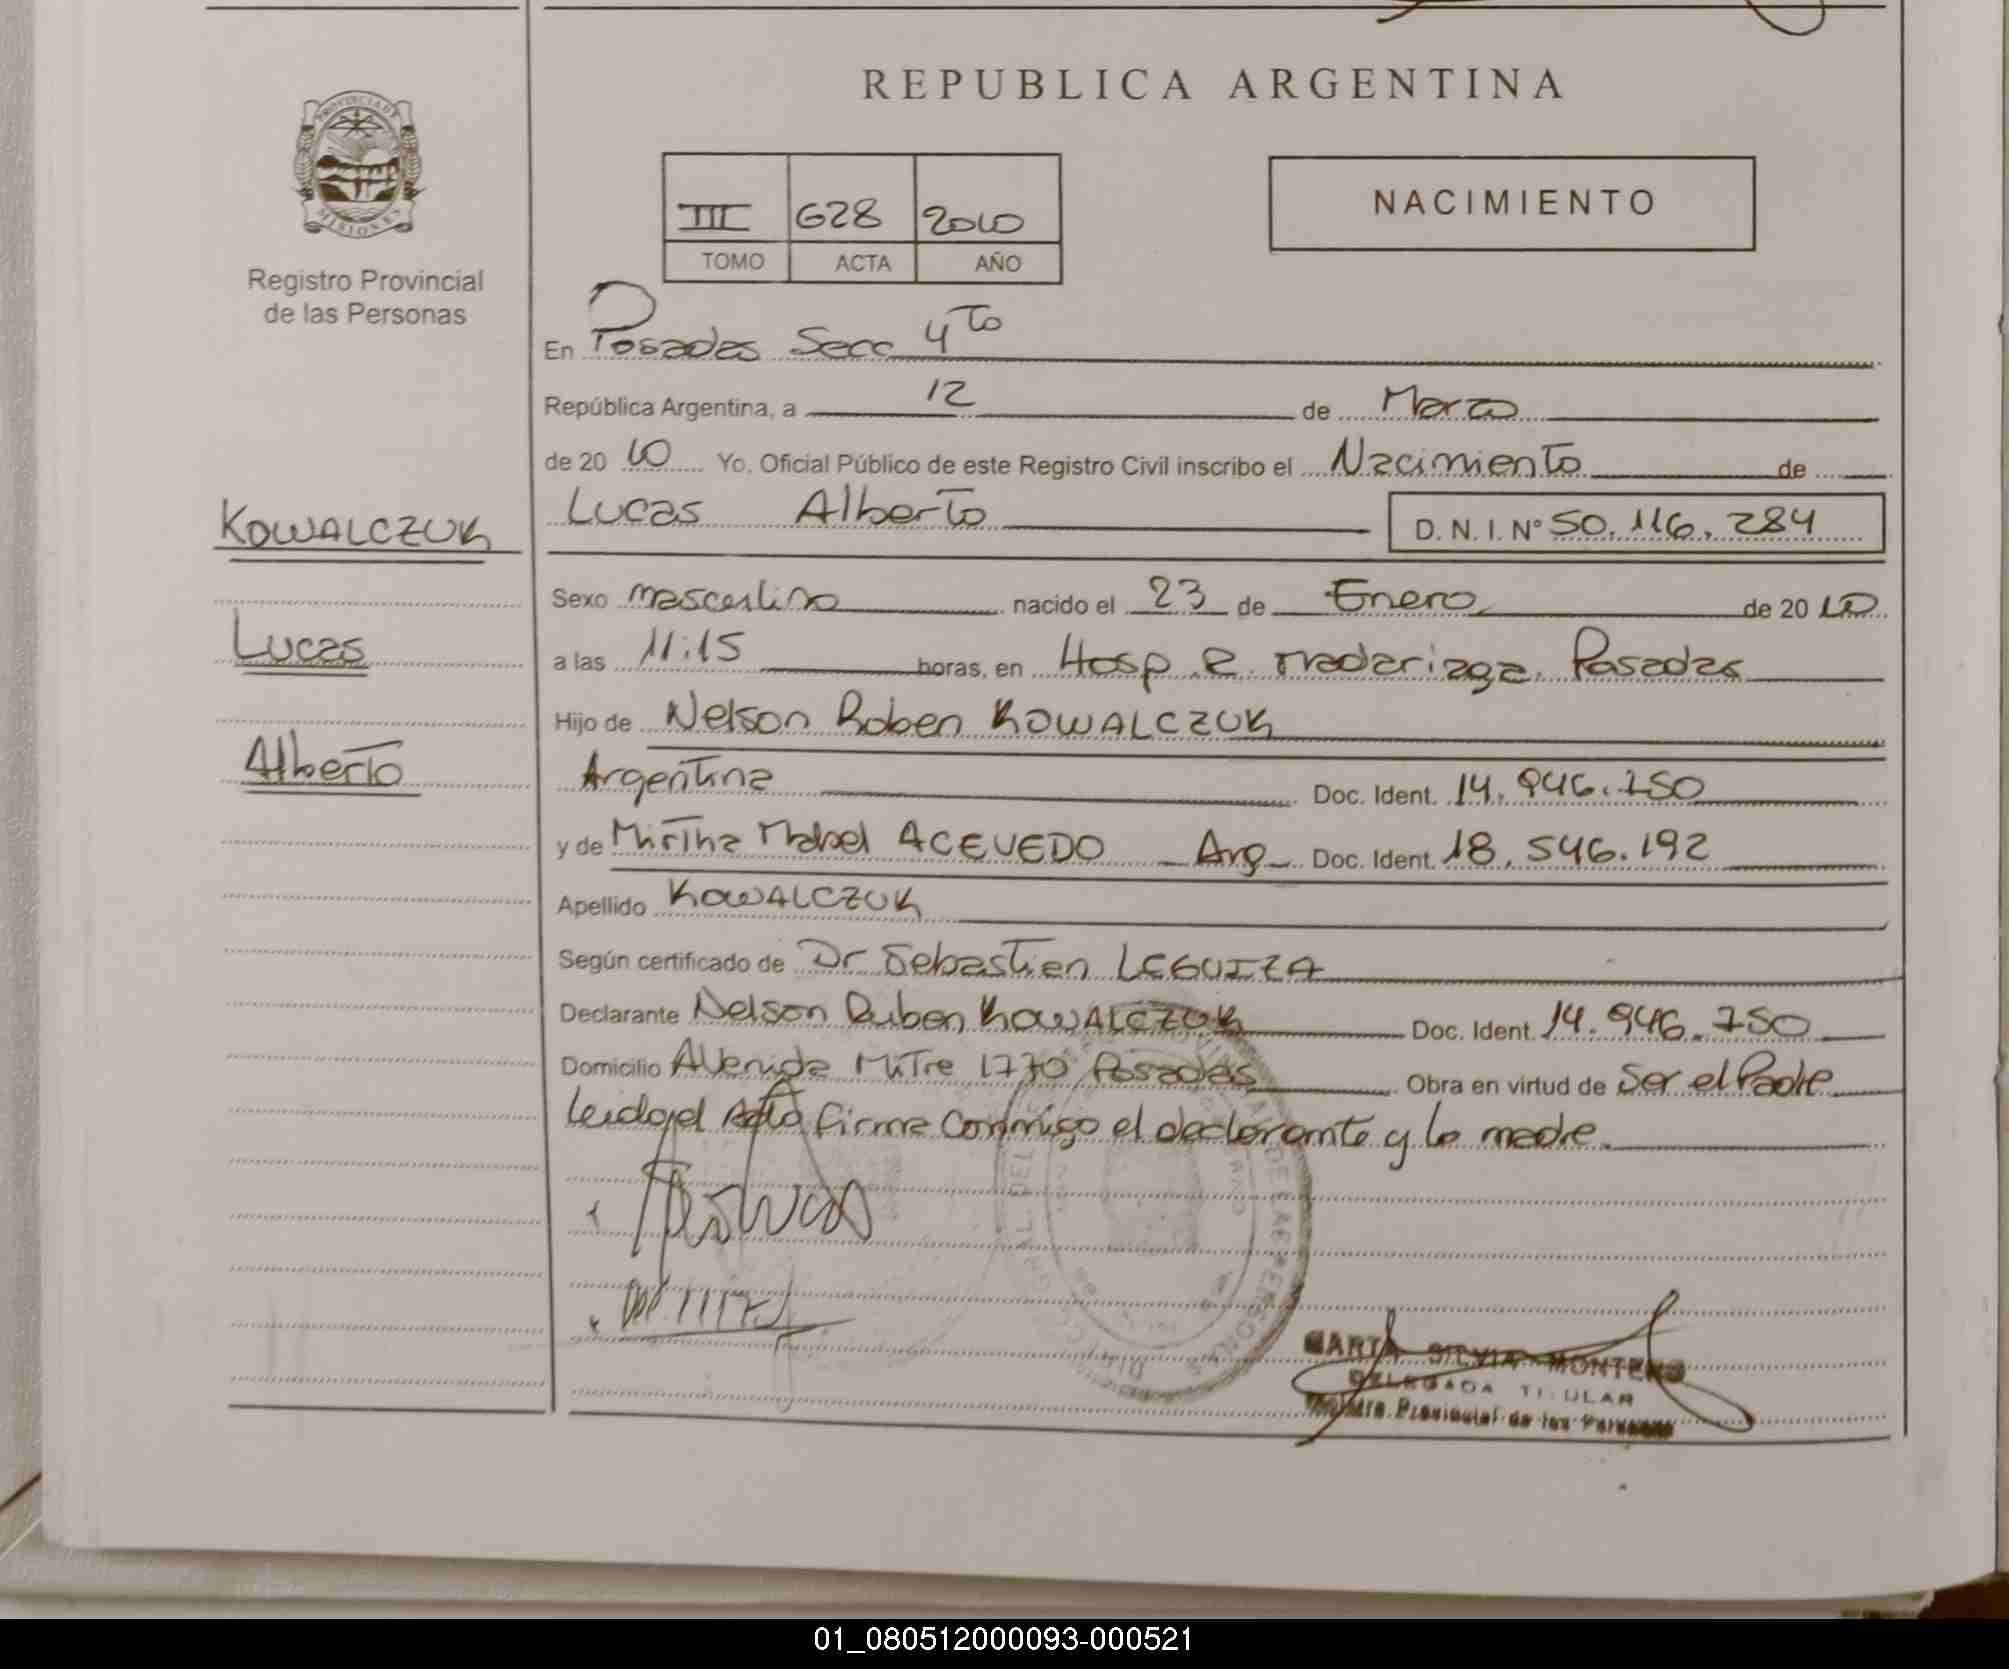 REPUBLICA ARGENTINA
PROVINCIA DE
MISIONES
Registro Provincial
de las Personas
III 628 2010
TOMO ACTA AÑO
NACIMIENTO
En Posadas Secc 4to
República Argentina, a 12 de Marzo
de 20 10 Yo, Oficial Público de este Registro Civil inscribo el Nacimiento de
KOWALCZUK
Lucas
Alberto
Lucas Alberto D. N. I. Nº 50.116.284
Sexo masculino nacido el 23 de Enero de 20 10
a las 11:15 horas, en Hosp. R. Madariaga. Posadas
Hijo de Nelson Ruben KOWALCZUK
Argentina Doc. Ident. 14.946.750
y de Mirtha Mabel ACEVEDO Arg Doc. Ident. 18.546.192
Apellido KOWALCZUK
Según certificado de Dr Sebastien LEGUIZA
Declarante Nelson Ruben KOWALCZUK Doc. Ident. 14.946.750
Domicilio Avenida Mitre 1770 Posadas Obra en virtud de Ser el Padre
Leido el Acta firma conmigo el declarante y la madre.
MARTA SILVIA MONTERO
DELEGADA TITULAR
Registro Provincial de las Personas
01_080512000093-000521